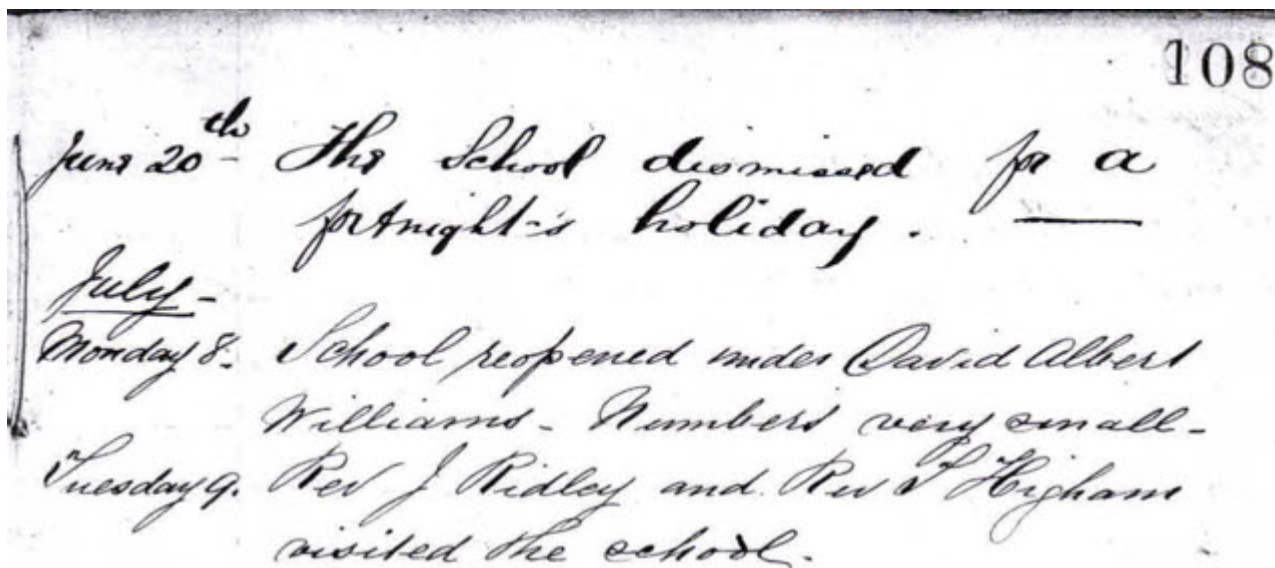 108
June 20th The School dismissed for a
fortnight's holiday. —
July -
Monday 8. School reopened under David Albert
Williams - Numbers very small -
Tuesday 9. Rev J Ridley and Rev T Higham
visited the school.